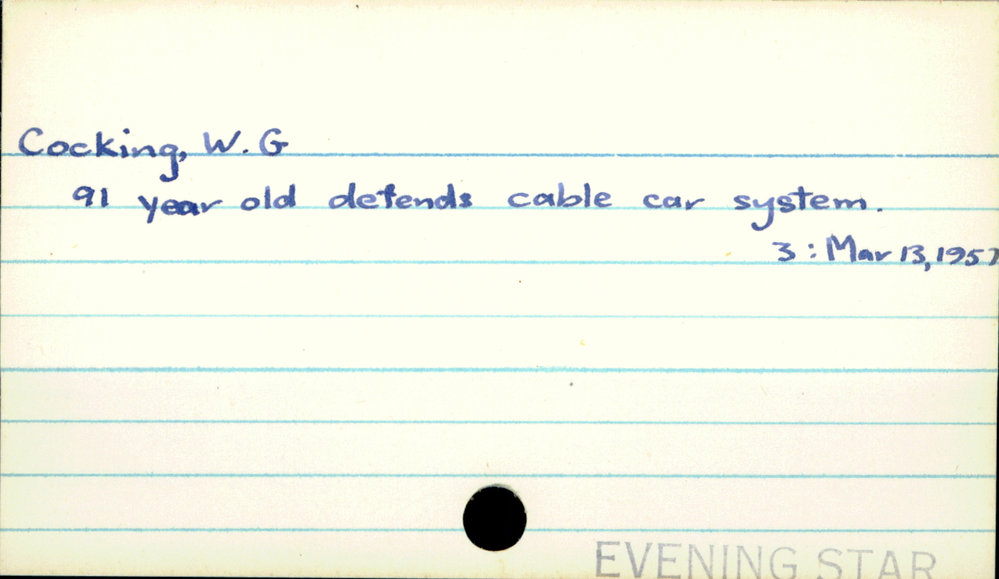 Cocking, W. G
91 year old defends cable car system.
3 : Mar 13, 1957
EVENING STAR